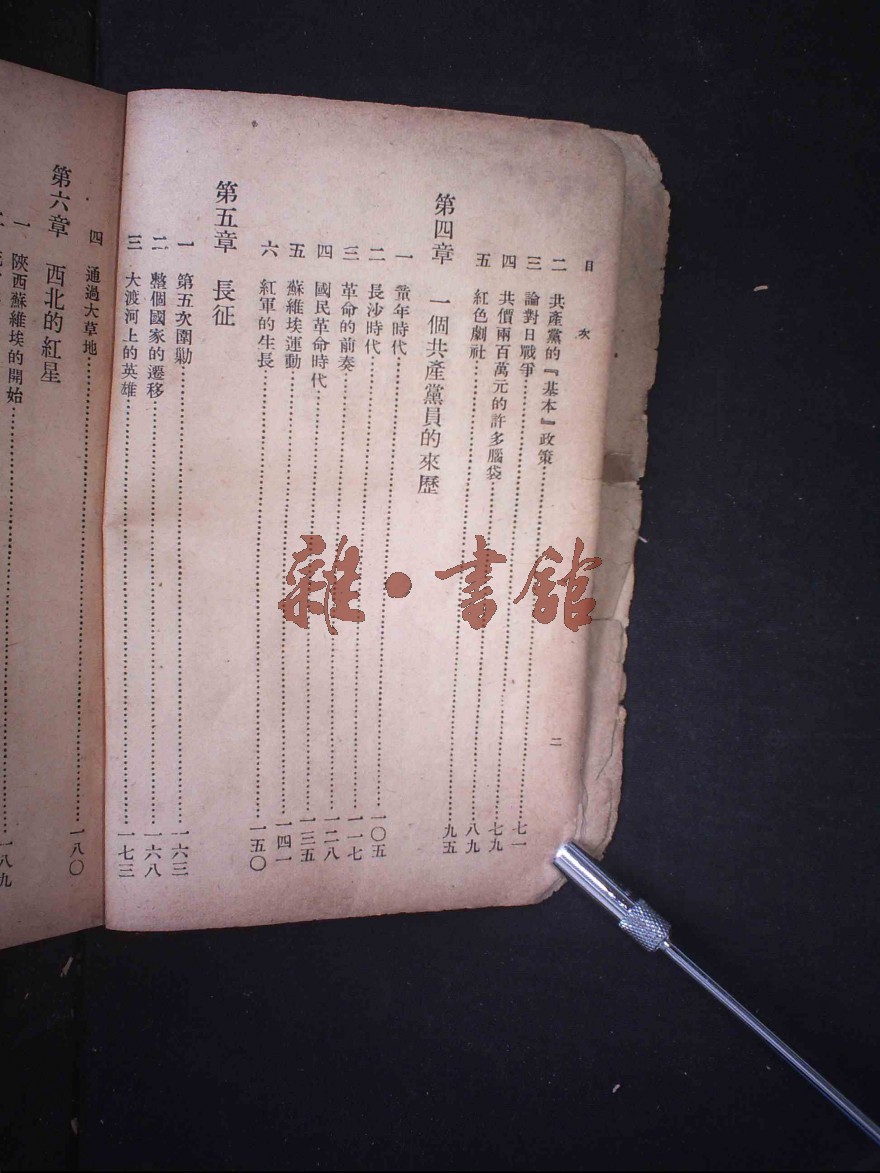 目次 二
二 共產黨的『基本』政策……七一
三 論對日戰爭……七九
四 共價兩百萬元的許多腦袋……八九
五 紅色劇社……九五
第四章 一個共產黨員的來歷
一 童年時代……一〇五
二 長沙時代……一一七
三 革命的前奏……一二八
四 國民革命時代……一三五
五 蘇維埃運動……一四一
六 紅軍的生長……一五〇
第五章 長征
一 第五次圍勦……一六三
二 整個國家的遷移……一六八
三 大渡河上的英雄……一七三
四 通過大草地……一八〇
第六章 西北的紅星
一 陝西蘇維埃的開始……一八九
雜·書館